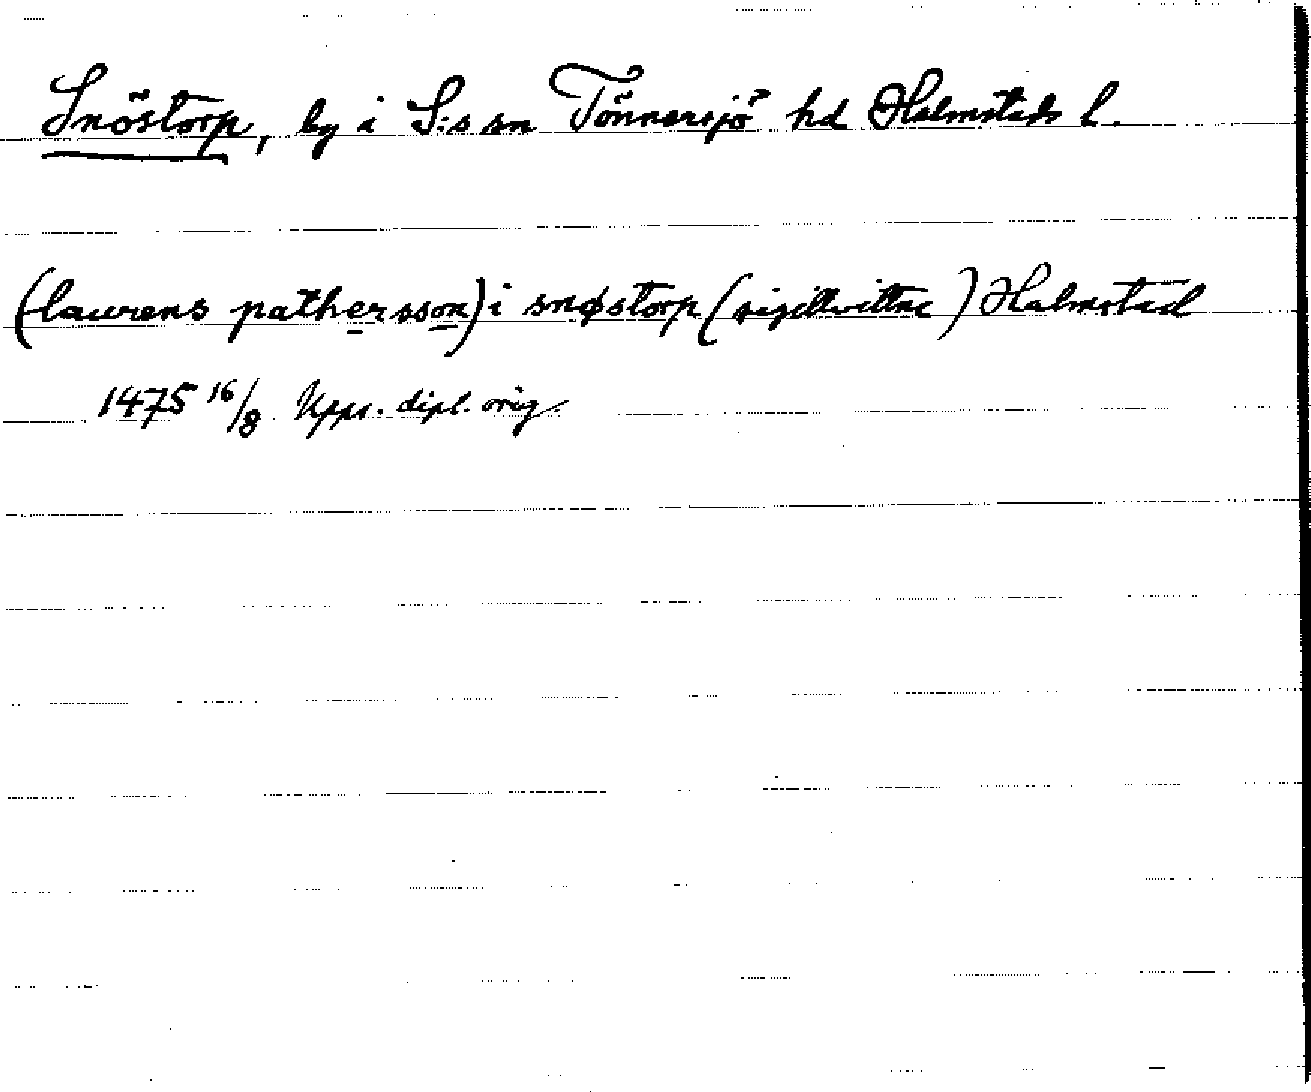 Snöstorp, by i S:s sn Tönnersjö hd Hallands l.
(laurens pathersson) i snøstorp (sigillvittne) Halmstad
1475 16/8 Upps. dipl. orig.